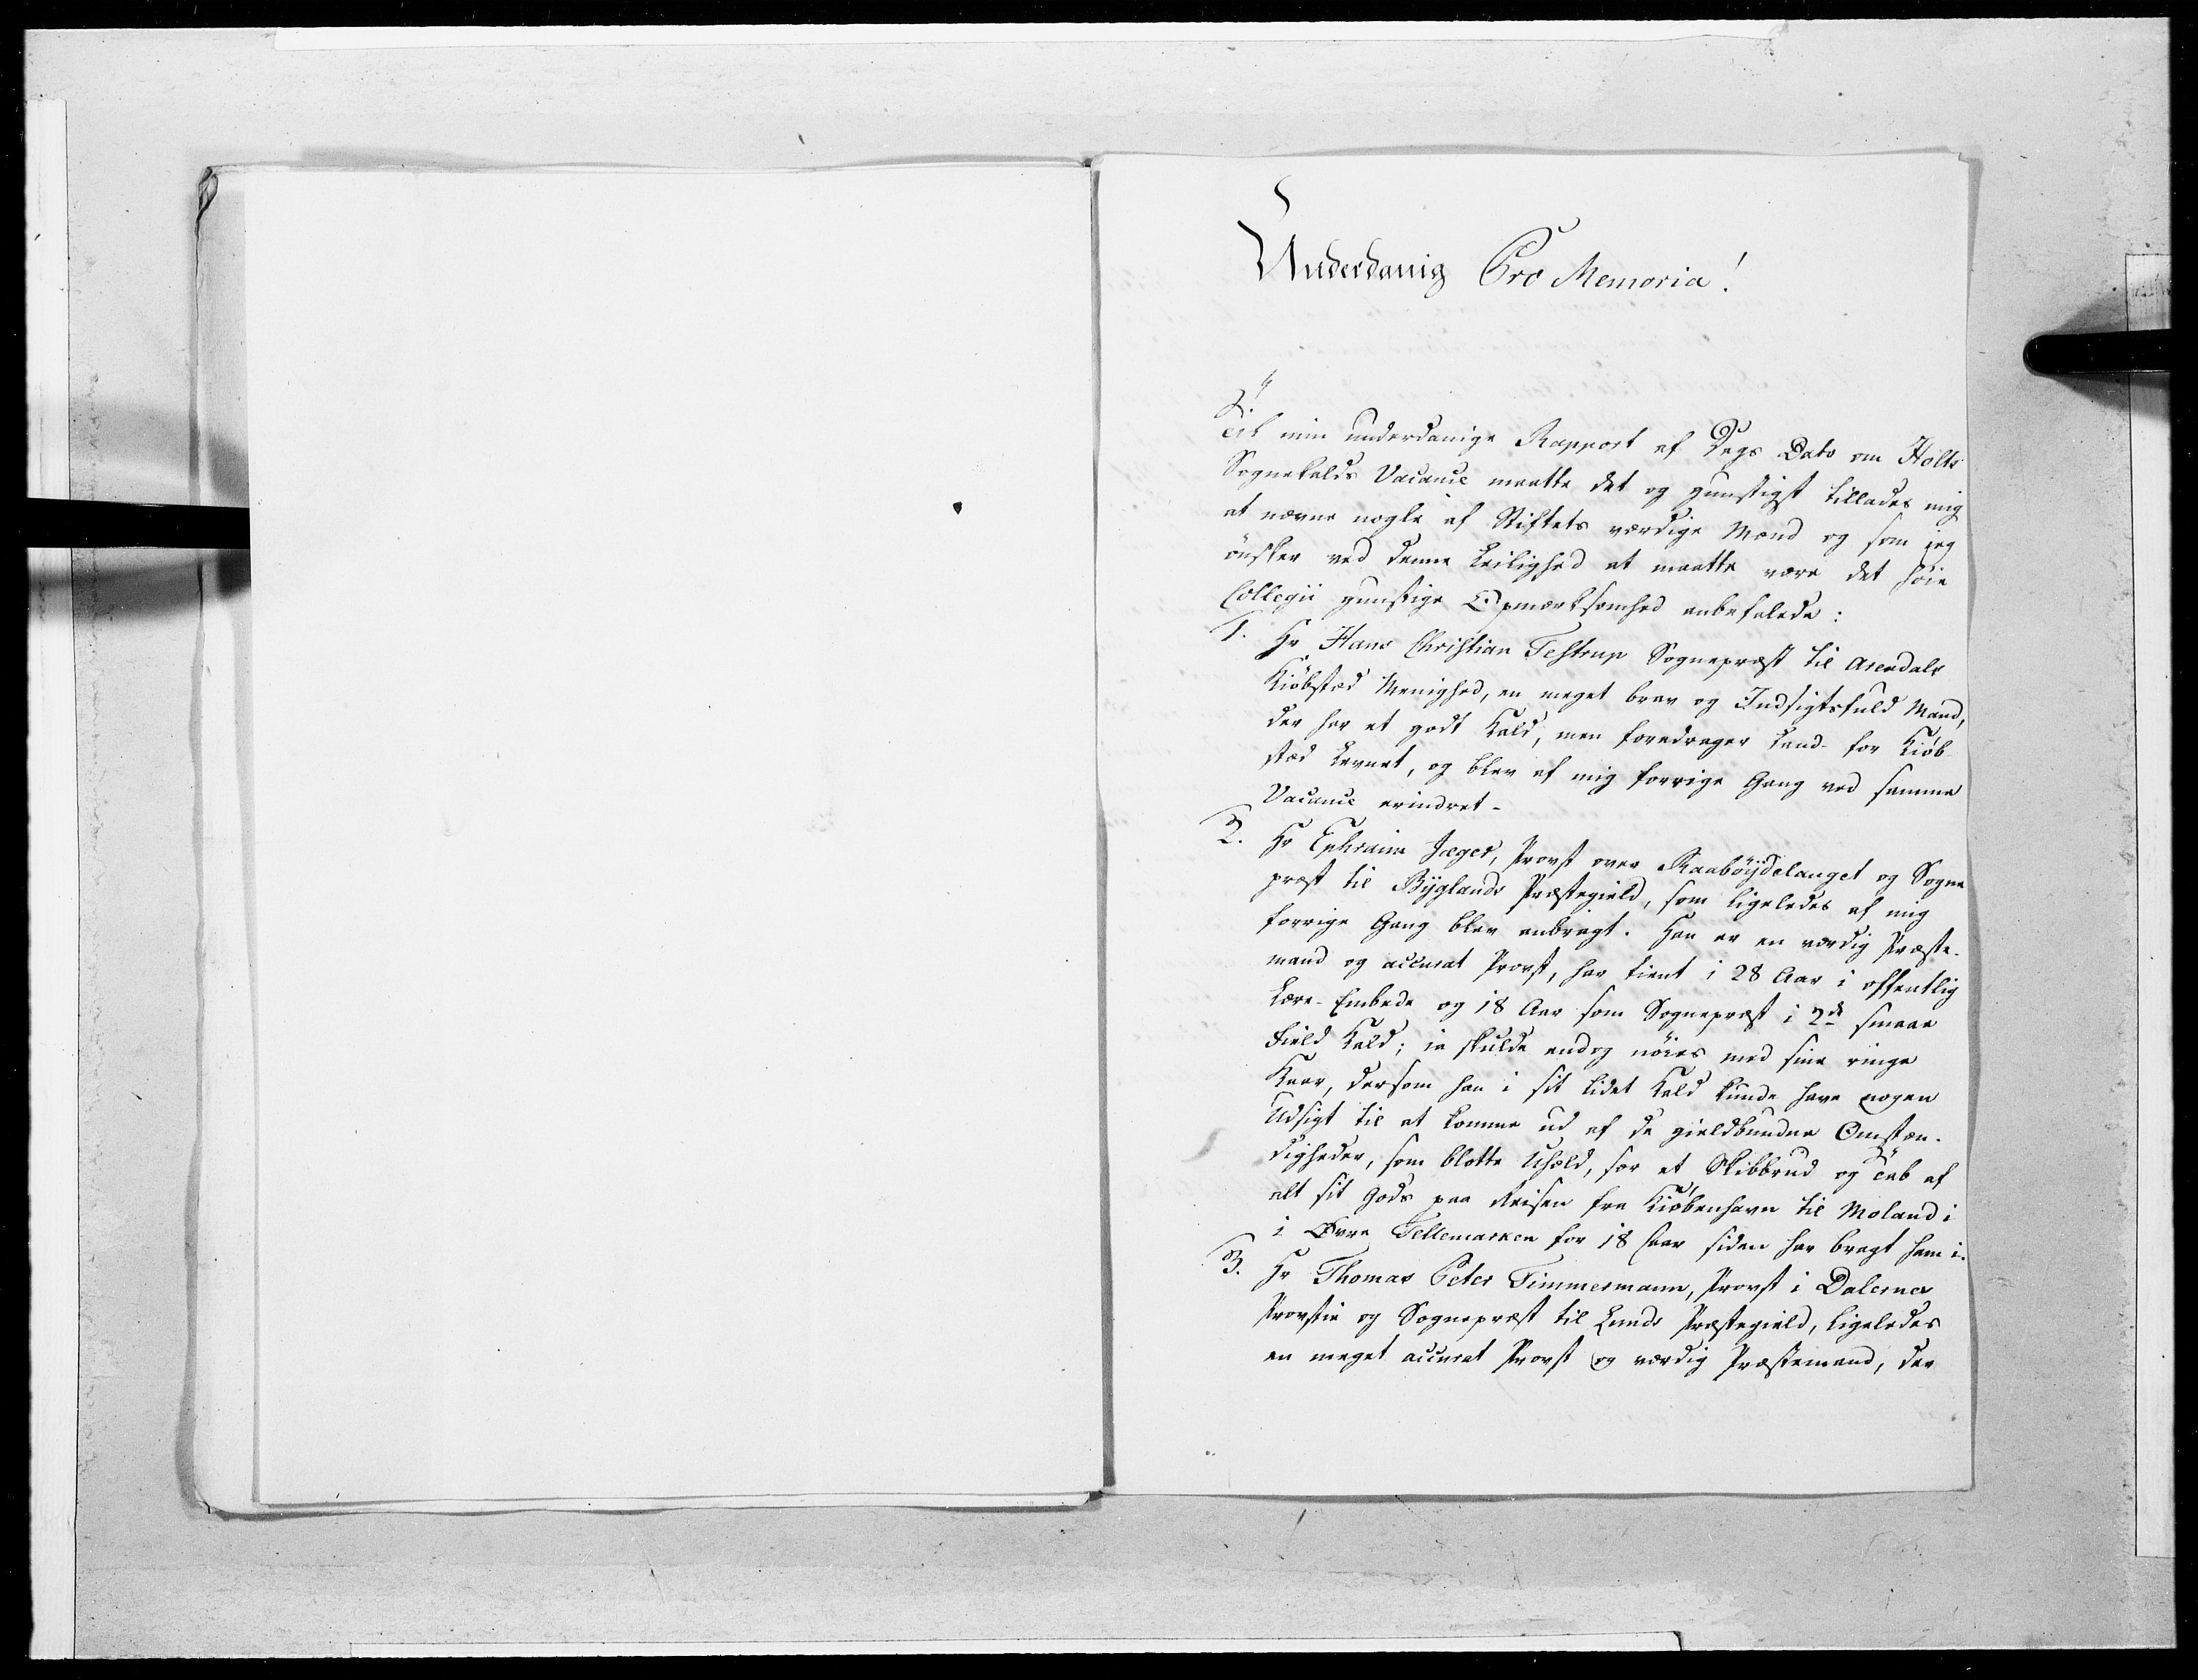 Underdanig Pro Memoria!
Til min underdanige Rapport af Dags Dato om Holts
Sognekalds Vacance maatte det og gunstigst tillades mig
at nævne nogle af Stiftets værdige Mænd og som jeg
ønsker ved denne Leilighed at maatte være det høie
Collegii gunstige Opmærksomhed anbefalede:
1. Hr Hans Christian Testrup Sognepræst til Arendals
Kiöbstæd Menighed, en meget brav og Indsigtsfuld Mand,
der har et godt Kald, men foredrager Land- for Kiöb-
stæd Levnet, og blev af mig forrige Gang ved samme
Vacance erindret-
2. Hr Ephraim Jæger, Provst over Raabøÿdelauget og Sogne
præst til Bÿglands Præstegield, som ligeledes af mig
forrige Gang blev anbragt. Han er en værdig Præste-
mand og accurat Provst, har tient i 28 Aar i offentlig
Lære-Embede og 18 Aar som Sognepræst i 2de smaae
Field Kald; ja skulde endog nöies med sine ringe
Kaar, dersom han i sit lidet Kald kunde have nogen
Udsigt til at komme ud af de gieldbundne Omstæn-
digheder, som blotte Uheld, saasom et Skibbrud og Tab af
alt sit Gods paa Reisen fra Kiöbenhavn til Moland i
i Øvre Tellemarken for 18 Aar siden har bragt ham i.
3. Hr Thomas Peter Timmermann, Provst i Dalernes
Provstie og Sognepræst til Lunds Præstegield, ligeledes
en meget accurat Provst og værdig Præstemand, der